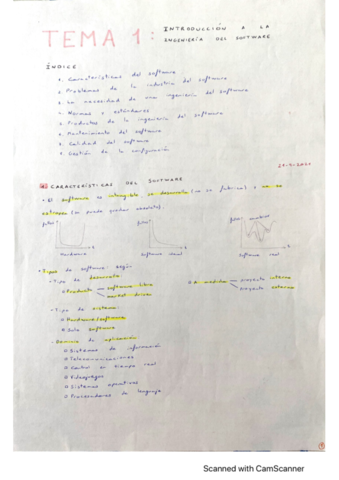 TEMA 1: INTRODUCCIÓN A LA
INGENIERÍA DEL SOFTWARE
ÍNDICE:
1. Características del software
2. Problemas de la industria del software
3. La necesidad de una ingeniería del software
4. Normas o estándares
5. Productos de la ingeniería del software
6. Mantenimiento del software
7. Calidad del software
8. Gestión de la configuración
CARACTERÍSTICAS DEL SOFTWARE
• El software es intangible se desarrolla (no se fabrica) y no se
estropea (se puede quedar obsoleto).
Hardware
Software ideal
Software real
• Tipos de software según
- Tipo de desarrollo
Producto
software libre
market-driven
A medida
proyecto interno
proyecto externo
- Tipo de sistema:
Hardware/software
Solo software
- Dominio de aplicación
Sistemas de información
Telecomunicaciones
Control en tiempo real
Videojuegos
Sistemas operativos
Procesadores de lenguaje
Scanned with CamScanner